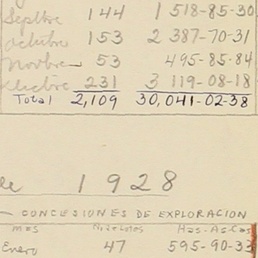 Septbre 144 1 518-85-30
Octubre 153 2 387-70-31
Novbre 53 495-85-84
231 3 119-08-18
Total 2,109 30,041-02-38
1928
CONCESIONES DE EXPLORACION
mes Has-As-Cas
Enero 47 595-90-33